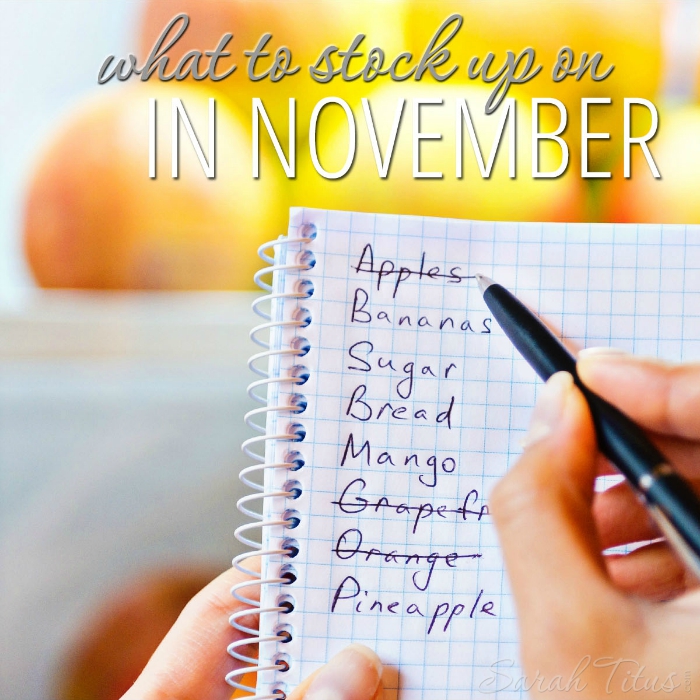 what to stock up on
IN NOVEMBER
Apples
Bananas
Sugar
Bread
Mango
Grapefr
Orange
Pineapple
Sarah Titus